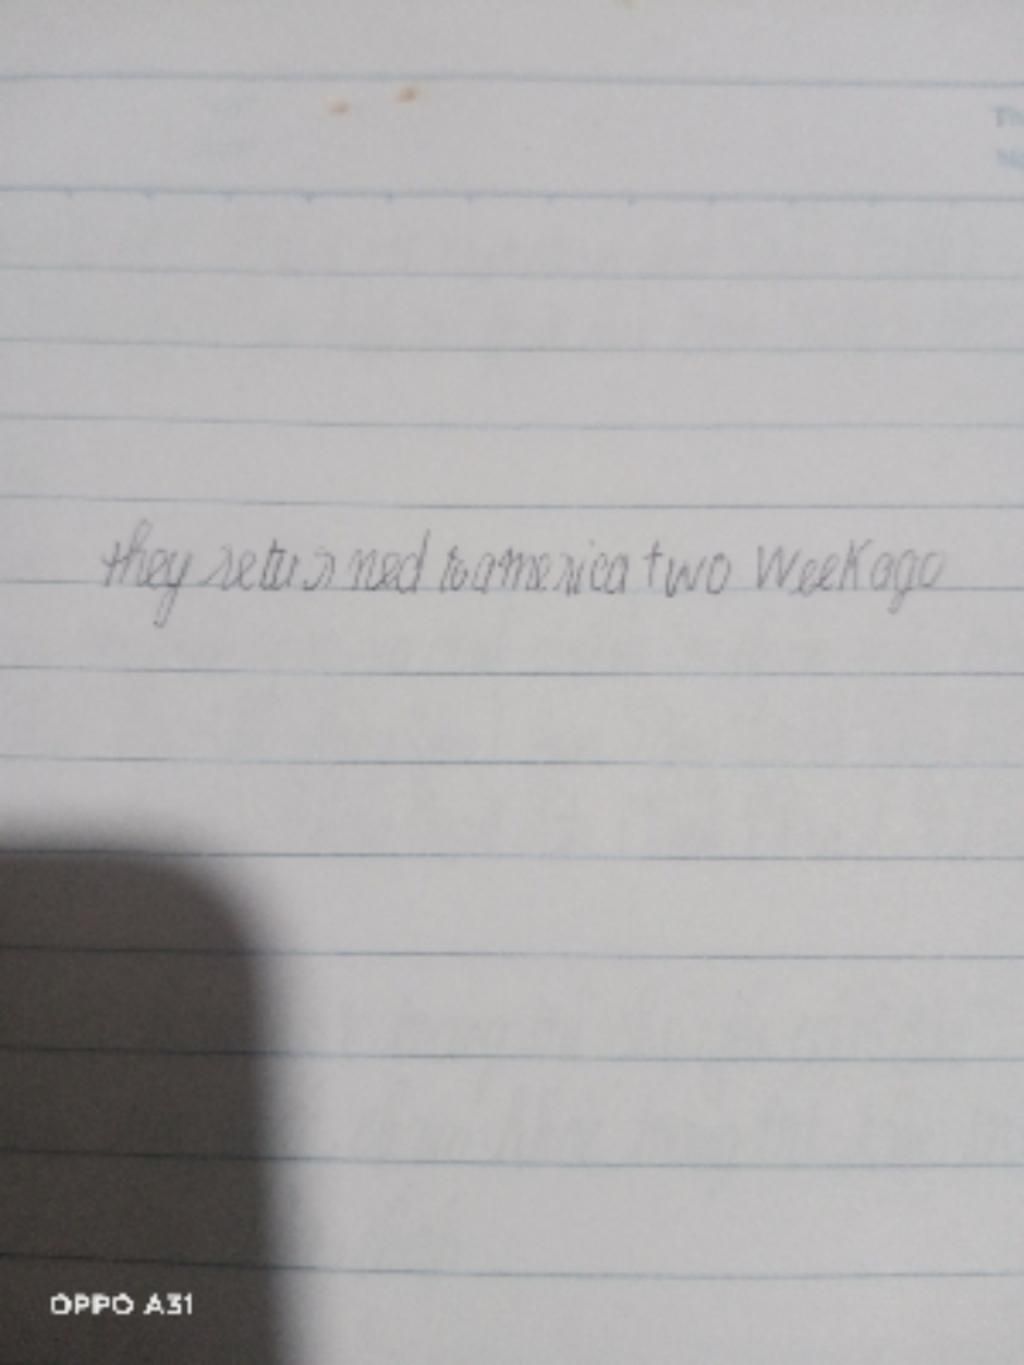 they returned to america two week ago
OPPO A31